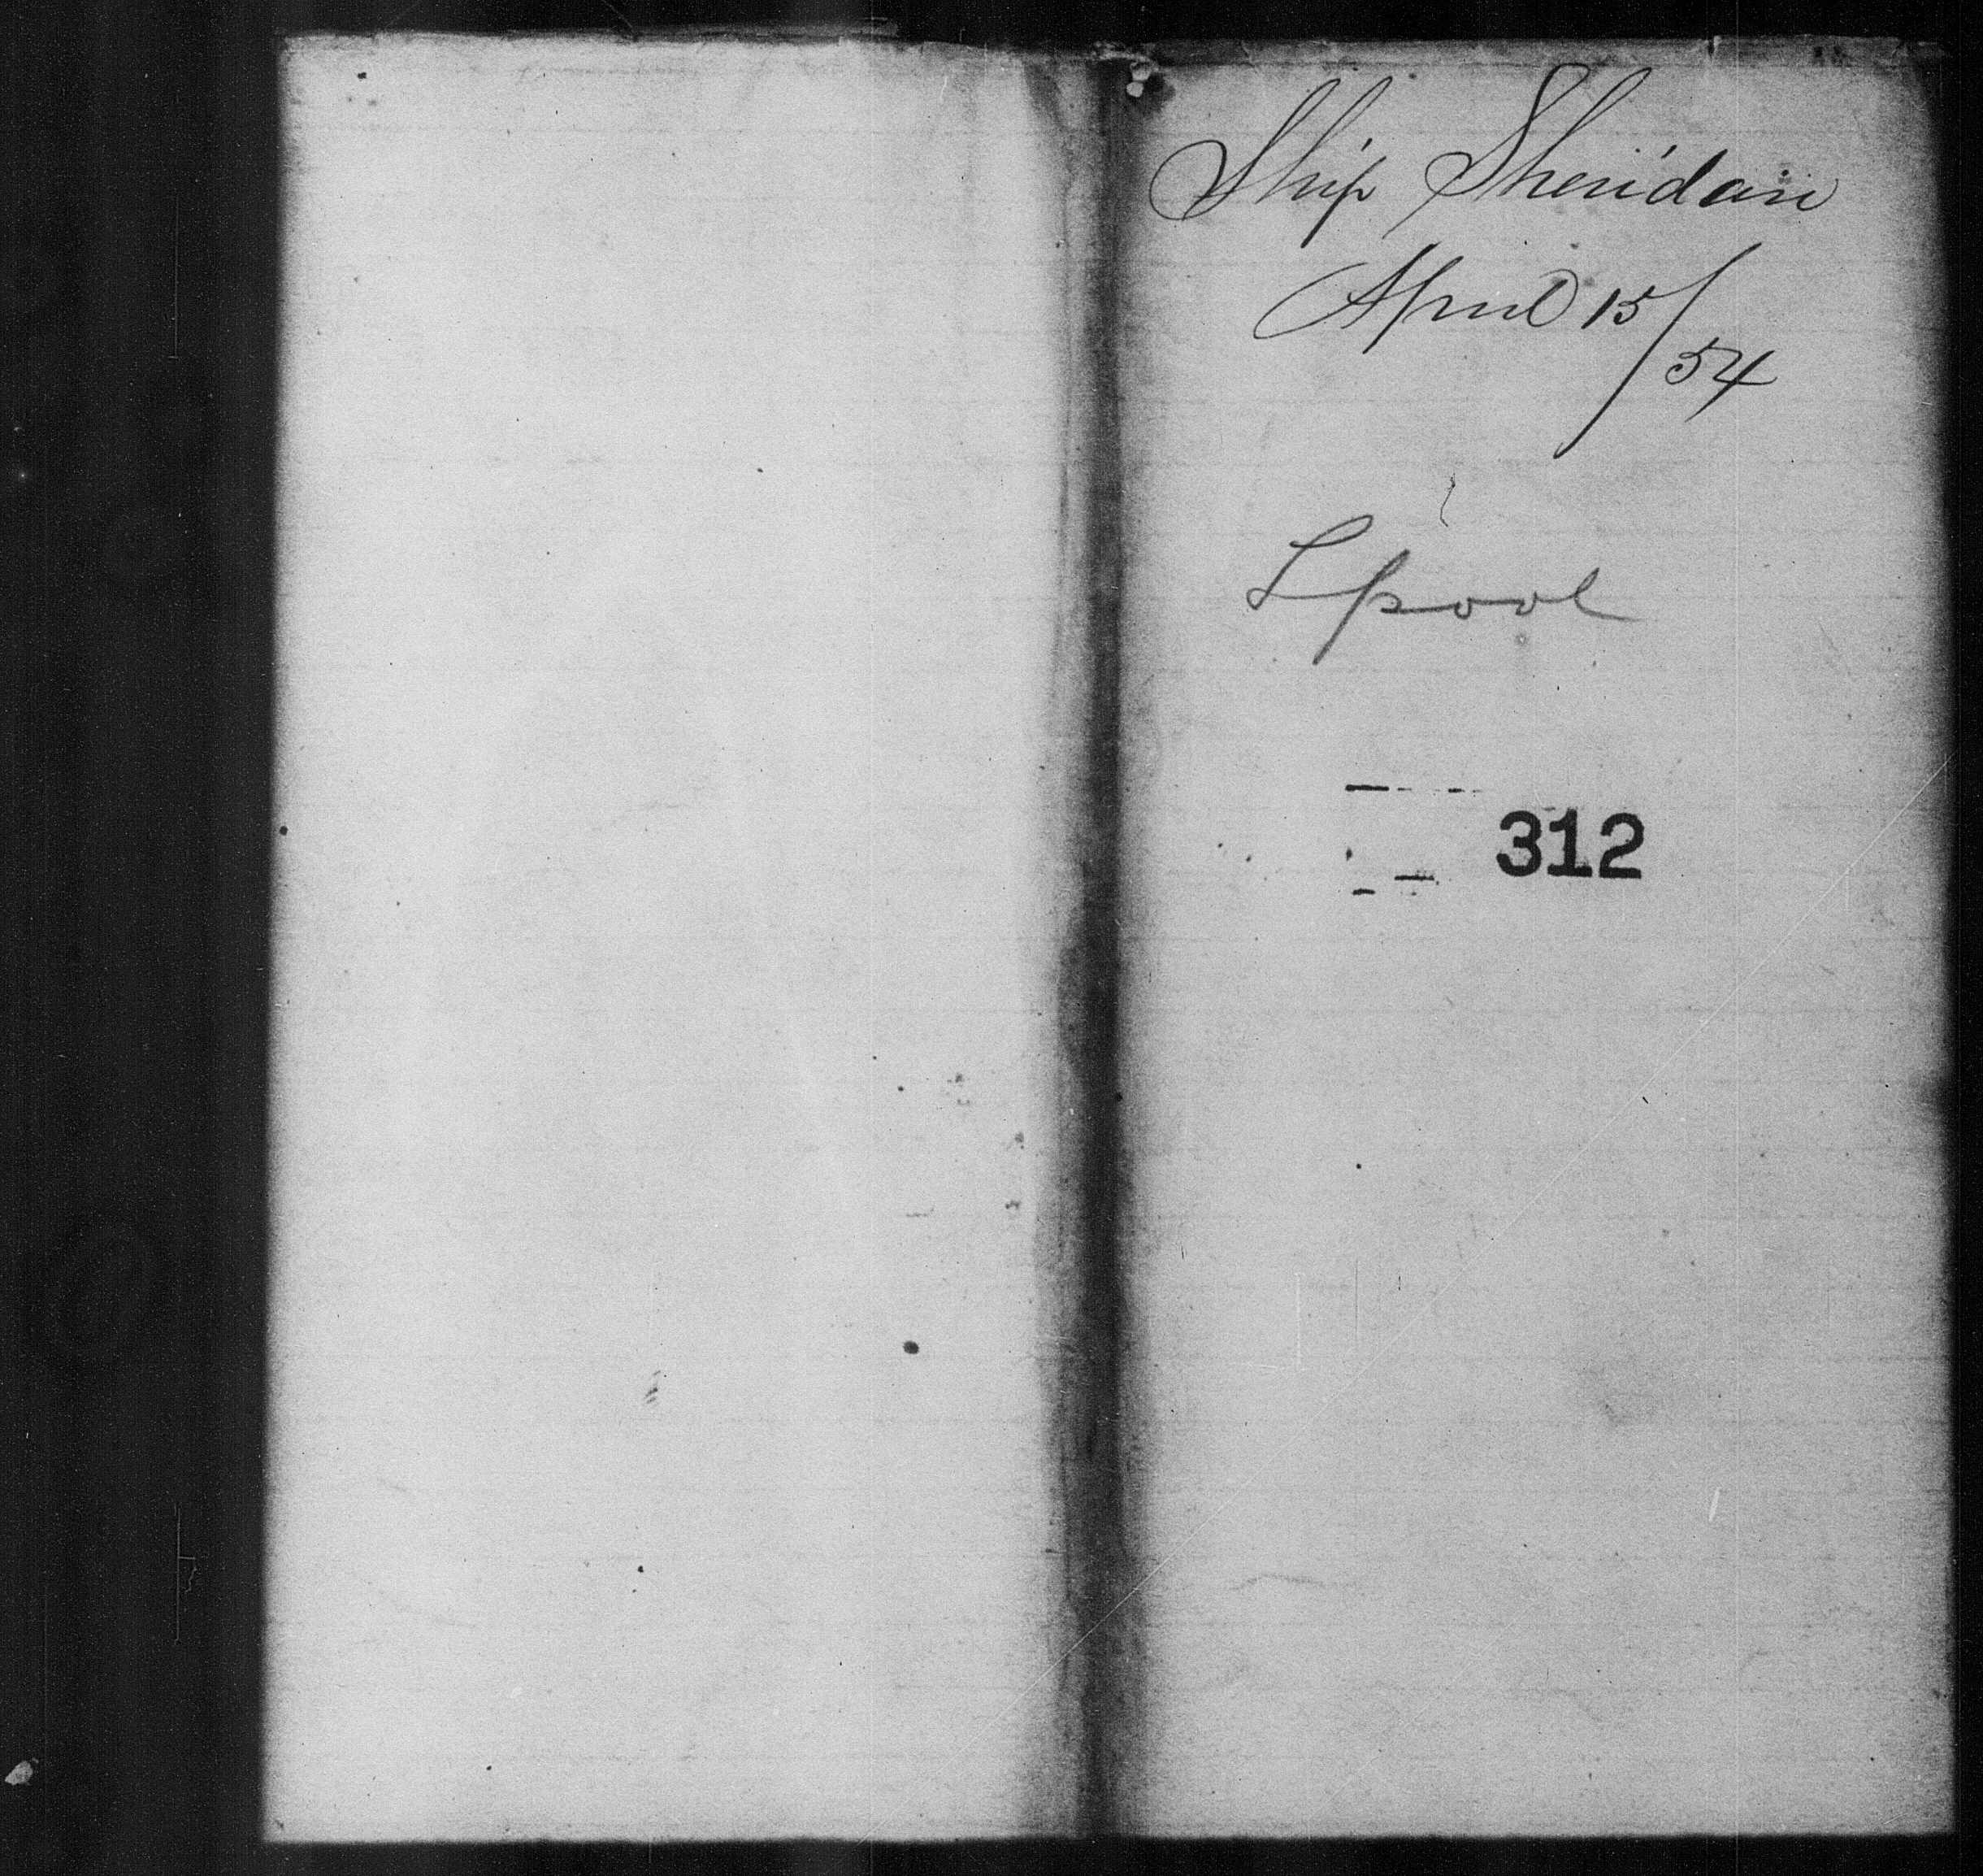 Ship Sheridan
April 15/54
Lpool
312